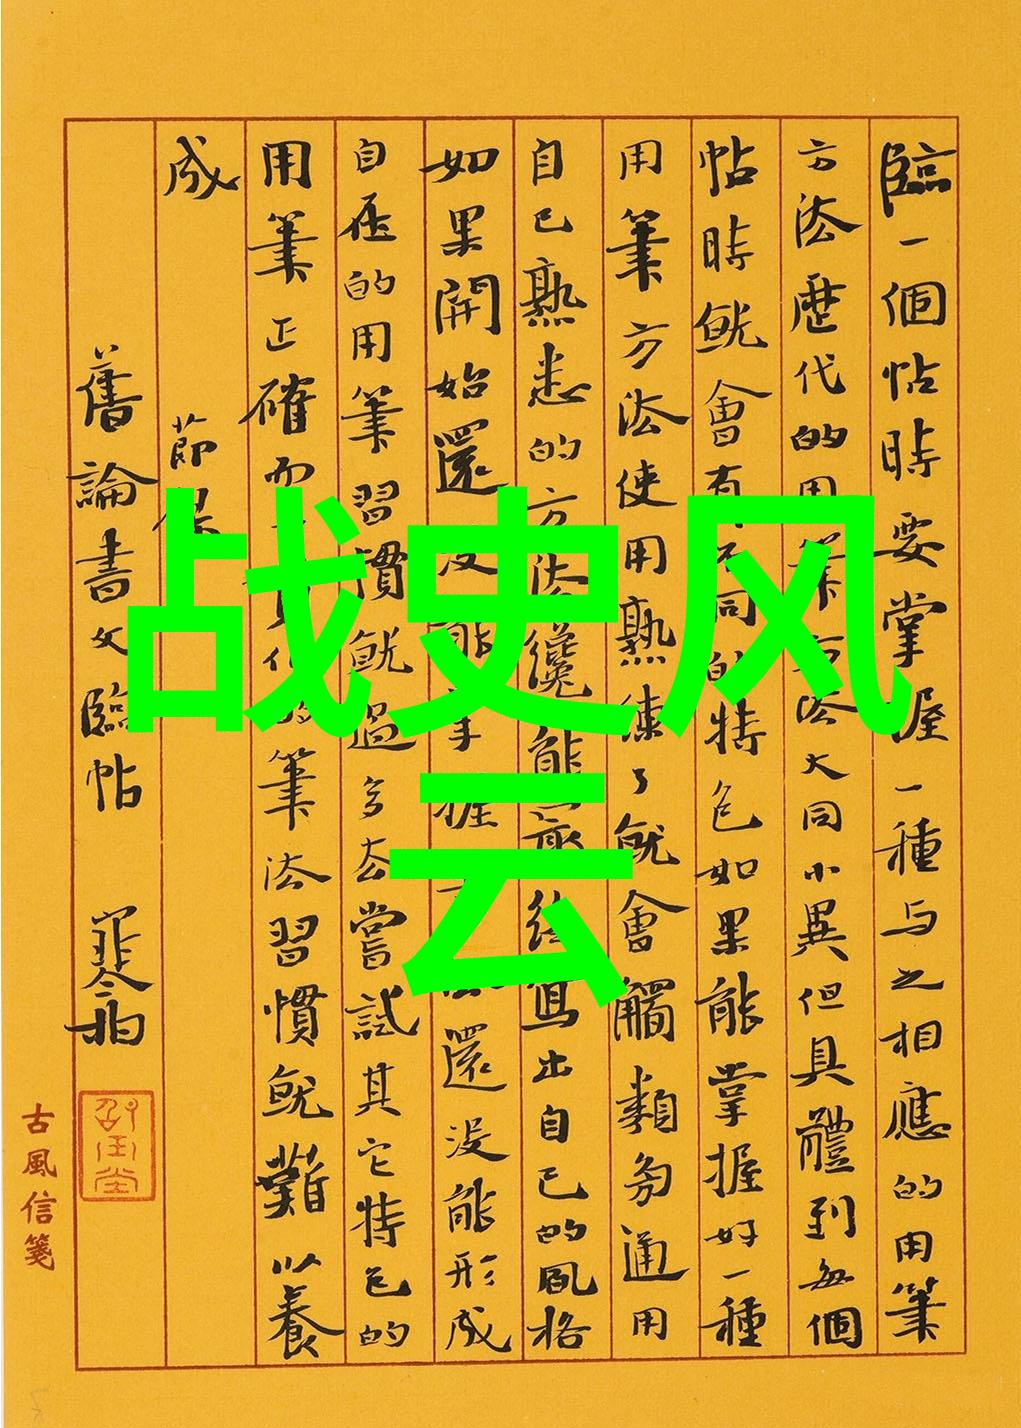 臨一個帖時要掌握一種与之相應的用筆
方法歷代的用筆方法大同小異但具體到每個
帖時就會有不同的特色如果能掌握好一種
用筆方法使用熟練了就會觸類旁通用
自己熟悉的方法纔能終寫出自己的風格
如果開始還沒能掌握還沒能形成
自在的用筆習慣就過多去嘗試其它特色的
用筆正確而的筆法習慣就難以養
成 節
舊論書文臨帖
古風信箋
战史风
云